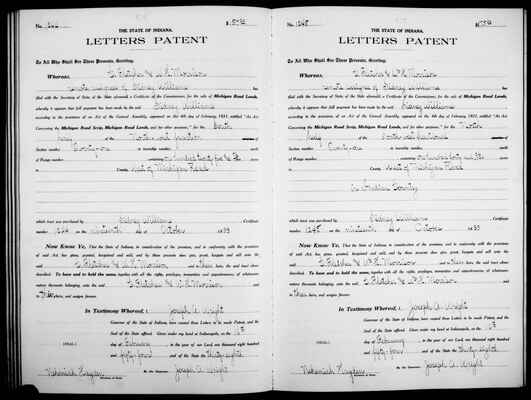 THE STATE OF INDIANA.
LETTERS PATENT
To All Who Shall See These Presents, Greeting.
Whereas, S Fletcher & W H Morrison
remote assignees of Sidney Williams
filed with the Secretary of State of the State aforesaid, a Certificate of the Commissioner, for the sale of Michigan Road Lands,
whereby it appears that full payment has been made by the said Sidney Williams
according to the provisions of an Act of the General Assembly, approved on the 9th day of February, 1831, entitled "An Act
Concerning the Michigan Road Scrip, Michigan Road Lands, and for other purposes," for the North
half North west quarter of
Section number Twenty one in township number north
of Range number one hundred
in County, west of Michigan Road
which tract was purchased by Sidney Williams Certificate
number 1244 on nineteenth day of October 1833
Now Know Ye, That the State of Indiana in consideration of the premises, and in conformity with the provisions
of said Act has given, granted, bargained and sold, and by these presents does give, grant, bargain and sell unto the
said S Fletcher & W H Morrison and to their heirs, the said tract above
described. To have and to hold the same, together with all the rights, privileges, immunities and appurtenances of whatsoever
nature thereunto belonging, unto the said S Fletcher & W H Morrison
and to their heirs, and assigns forever.
In Testimony Whereof, I Joseph A Wright
Governor of the State of Indiana, have caused these Letters to be made Patent, and the
Seal of the State affixed. Given under my hand at Indianapolis, on the
SEAL day of February in the year of our Lord, one thousand eight hundred and
fifty-four and of the State the thirty-eighth
By the Governor: Joseph A. Wright
Nehemiah Hayden Secretary of State
No. 1245
THE STATE OF INDIANA.
LETTERS PATENT
To All Who Shall See These Presents, Greeting.
Whereas, S Fletcher & W H Morrison
remote assignees of Sidney Williams
filed with the Secretary of State of the State aforesaid, a Certificate of the Commissioner, for the sale of Michigan Road Lands,
whereby it appears that full payment has been made by the said Sidney Williams
according to the provisions of an Act of the General Assembly, approved on the 9th day of February, 1831, entitled "An Act
Concerning the Michigan Road Scrip, Michigan Road Lands, and for other purposes," for the
half North west fractional of
Section number Twenty one in township number north
of Range number one hundred forty
in County, west of Michigan Road
in County
which tract was purchased by Sidney Williams Certificate
number 1245 on nineteenth day of October 1833
Now Know Ye, That the State of Indiana in consideration of the premises, and in conformity with the provisions
of said Act has given, granted, bargained and sold, and by these presents does give, grant, bargain and sell unto the
said S Fletcher & W H Morrison and to their heirs, the said tract above
described. To have and to hold the same, together with all the rights, privileges, immunities and appurtenances of whatsoever
nature thereunto belonging, unto the said S Fletcher & W H Morrison
and to their heirs, and assigns forever.
In Testimony Whereof, I Joseph A Wright
Governor of the State of Indiana, have caused these Letters to be made Patent, and the
Seal of the State affixed. Given under my hand at Indianapolis, on the
SEAL day of February in the year of our Lord, one thousand eight hundred and
fifty-four and of the State the thirty-eighth
By the Governor: Joseph A. Wright
Nehemiah Hayden Secretary of State